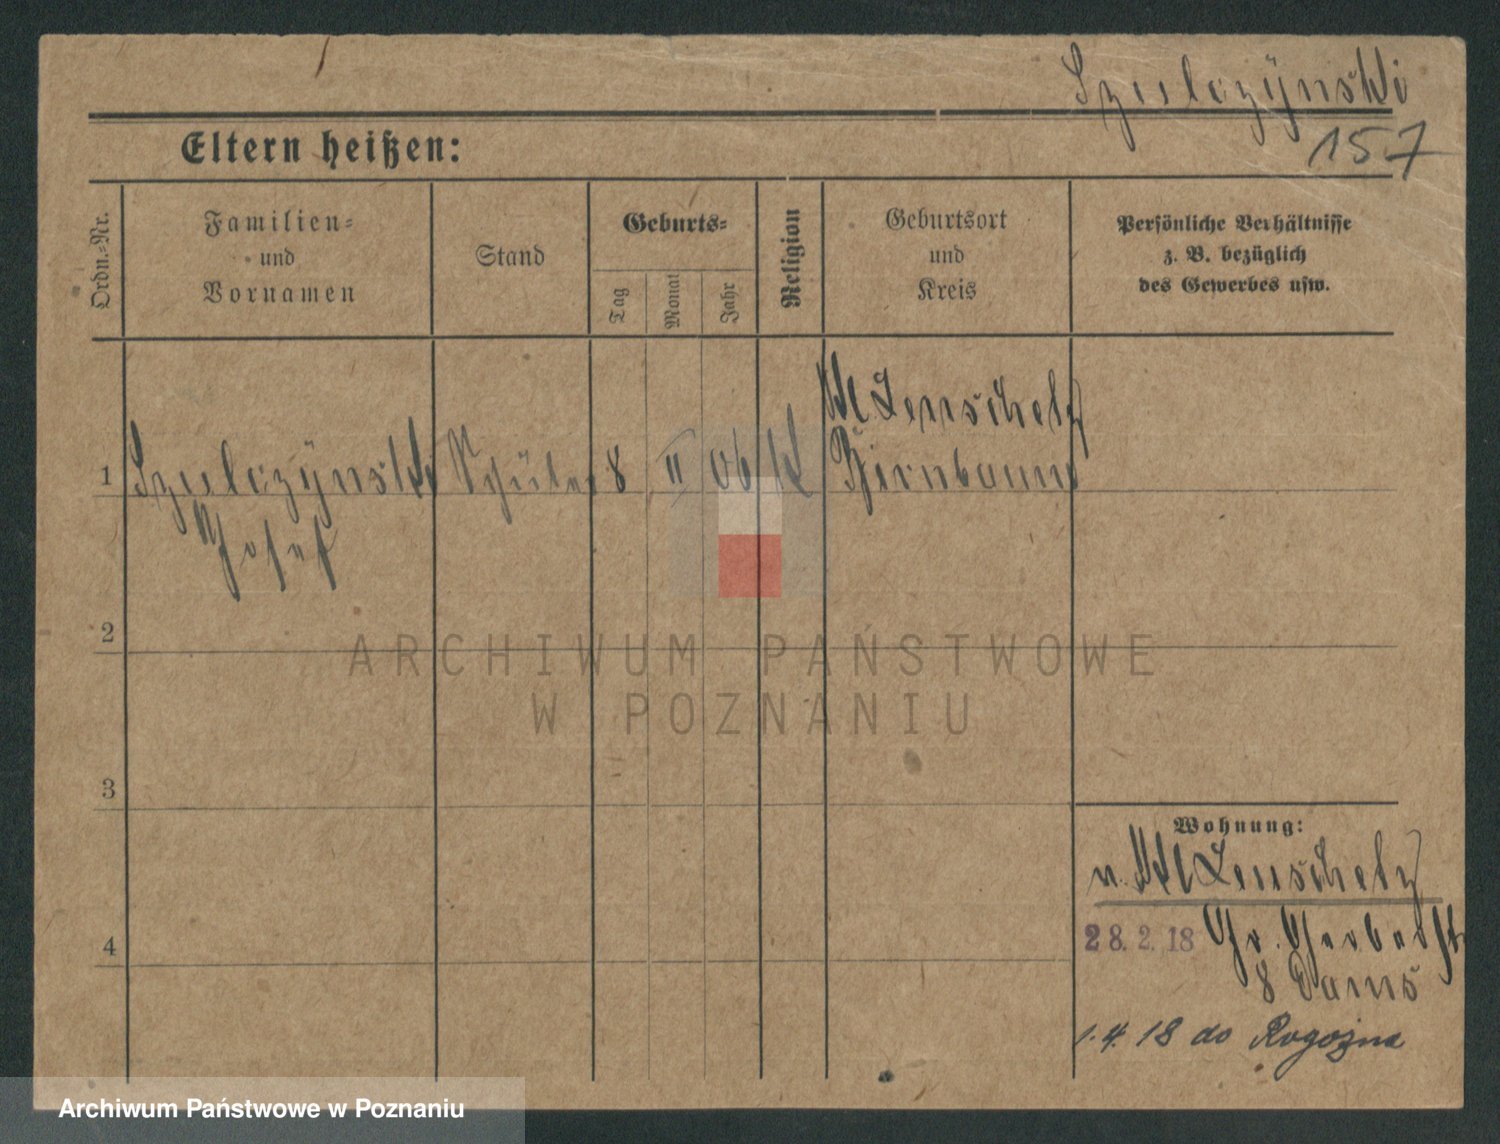 Szulczÿnski
157
Eltern heißen:
Ordn.-Nr.
Familien-
und
Vornamen
Stand
Geburts-
Tag
Monat
Jahr
Religion
Geburtsort
und
Kreis
Persönliche Verhältnisse
z. B. bezüglich
des Gewerbes usw.
1
Szulczÿnski
Josef
Schüler
8
II
06
K
Kl Lenschetz
Birnbaum
2
3
4
Wohnung:
v. Kl Lenschetz
28. 2. 18 Gr. Gerberstr
8
1. 4. 18 do Rogozna
ARCHIWUM PAŃSTWOWE
W POZNANIU
Archiwum Państwowe w Poznaniu